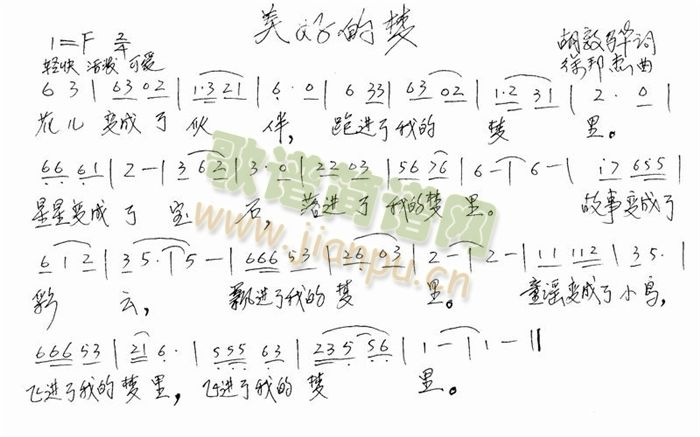 美好的梦
1=F 2/4
胡敦骅词
轻快 活泼 可爱
徐邦杰曲
6 3 | 63 02 | 1·3 21 | 6·0 | 6 33 | 63 02 | 1·2 31 | 2·0 |
花儿变成了伙伴，跑进了我的梦里。
66 61 | 2 — | 3 62 | 3·0 | 22 03 | 56 76 | 6 — | 6 — | i7 655 |
星星变成了宝石，落进了我的梦里。故事变成了
6 1 2 | 3 5· | 5 — | 666 53 | 26 03 | 2 — | 2 — | 11 112 | 35· |
彩云，飘进了我的梦里。童谣变成了小鸟，
666 53 | 21 6· | 555 63 | 235 56 | 1 — | 1 — ||
飞进了我的梦里，飞进了我的梦里。
歌谱简谱网
www.jianpu.cn